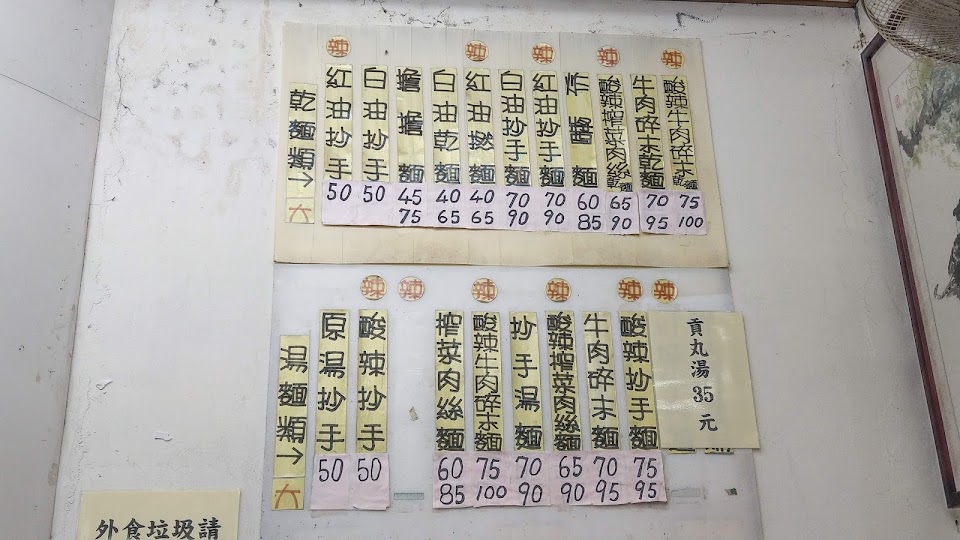 辣 辣 辣 辣 辣
乾麵類→
大
紅油抄手
50
白油抄手
50
擔擔麵
45
75
白油乾麵
40
65
紅油燃麵
40
65
白油抄手麵
70
90
紅油抄手麵
70
90
炸醬麵
60
85
酸辣榨菜肉絲乾麵
65
90
牛肉碎末乾麵
70
95
酸辣牛肉碎末乾麵
75
100
辣 辣 辣 辣 辣 辣
湯麵類→
大
原湯抄手
50
酸辣抄手
50
榨菜肉絲麵
60
85
酸辣牛肉碎末麵
75
100
抄手湯麵
70
90
酸辣榨菜肉絲麵
65
90
牛肉碎末麵
70
95
酸辣抄手麵
75
95
貢丸湯35元
外食垃圾請